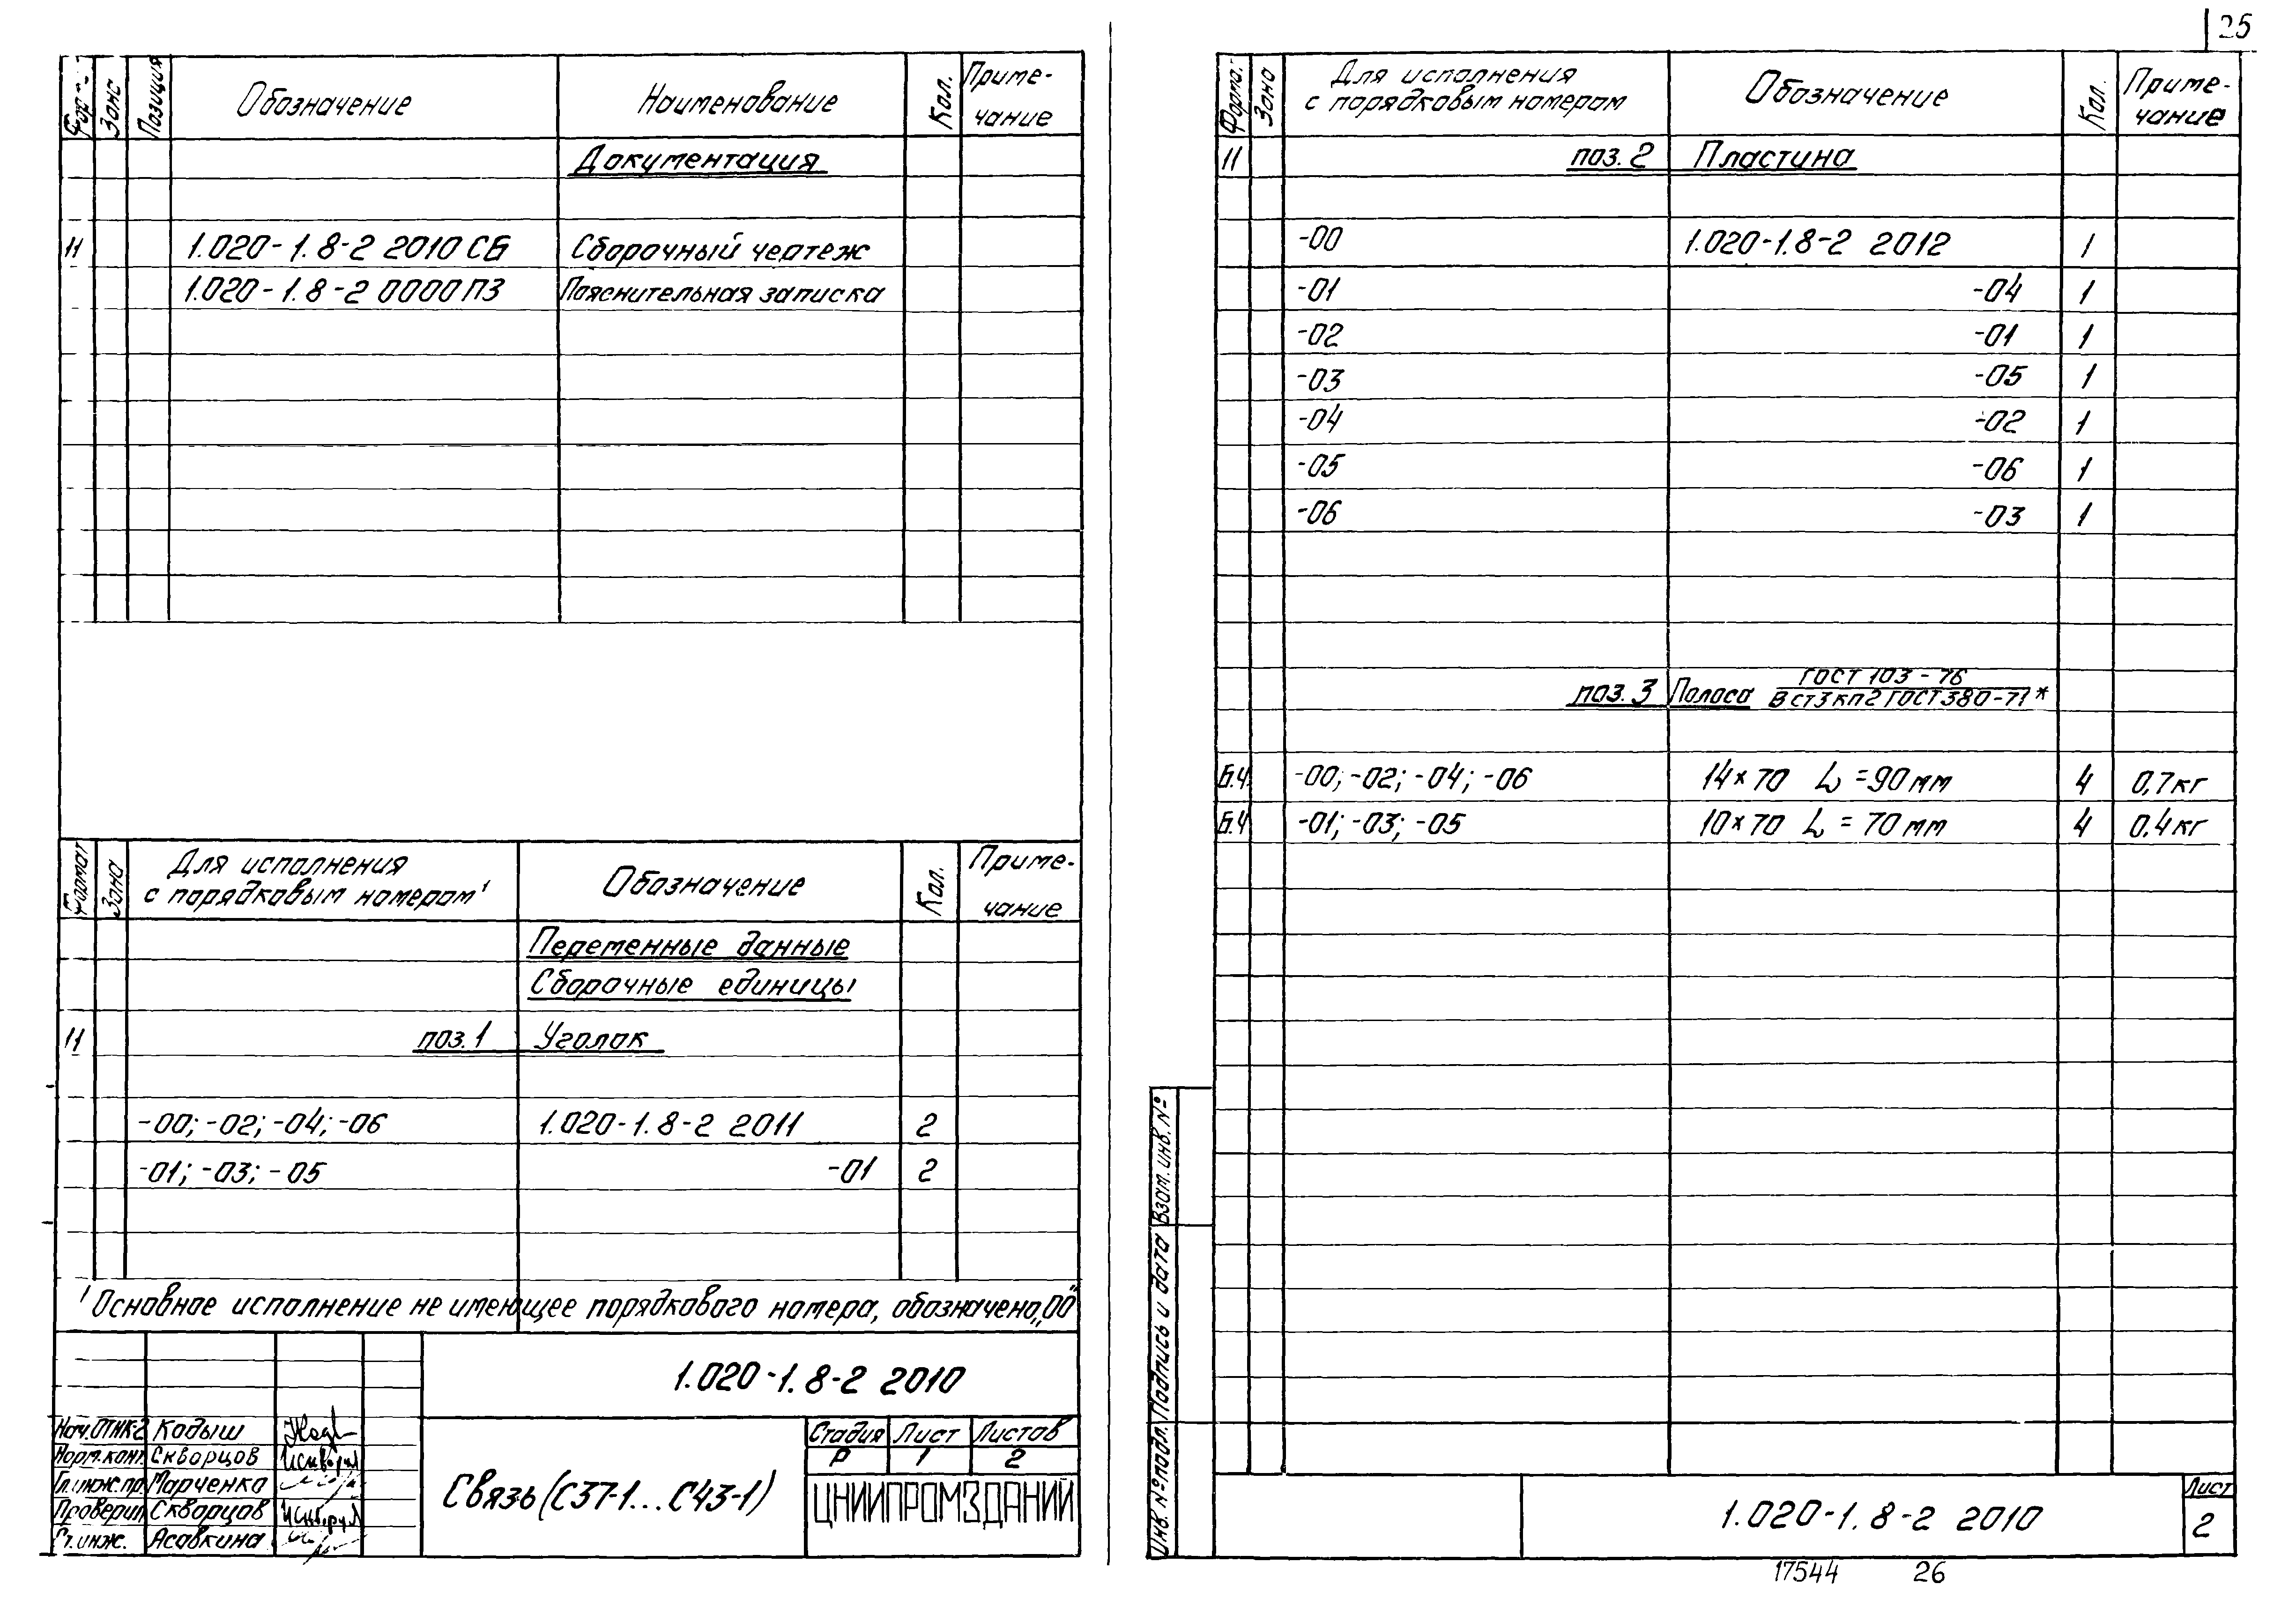 25
Фор- Зона Позиция Обозначение Наименование Кол. Приме-
чание
Документация
11 1.020-1.8-2 2010 СБ Сборочный чертеж
1.020-1.8-2 0000 ПЗ Пояснительная записка
Формат Зона Для исполнения
с порядковым номером¹ Обозначение Кол. Приме-
чание
Переменные данные
Сборочные единицы
11 поз. 1 Уголок
-00; -02; -04; -06 1.020-1.8-2 2011 2
-01; -03; -05 -01 2
¹ Основное исполнение не имеющее порядкового номера, обозначено „00"
1.020-1.8-2 2010
Нач.ОТНК-2 Кодыш
Норм.конт. Скворцов
Гл.инж.пр. Марченко
Проверил Скворцов
Ст.инж. Асавкина
Связь (С37-1...С43-1)
Стадия Лист Листов
Р 1 2
ЦНИИПРОМЗДАНИЙ
Форма. Зона Для исполнения
с порядковым номером Обозначение Кол. Приме-
чание
11 поз. 2 Пластина
-00 1.020-1.8-2 2012 1
-01 -04 1
-02 -01 1
-03 -05 1
-04 -02 1
-05 -06 1
-06 -03 1
поз. 3 Полоса ГОСТ 103-76
В ст3 кп2 ГОСТ 380-71*
Б.Ч. -00; -02; -04; -06 14×70 L=90 мм 4 0,7 кг
Б.Ч. -01; -03; -05 10×70 L=70 мм 4 0,4 кг
Инв. № подл. Подпись и дата Взам. инв. №
1.020-1.8-2 2010
Лист
2
17544 26